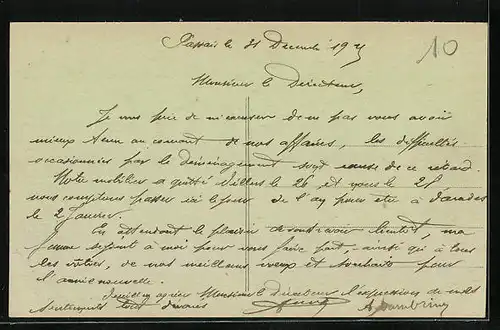 le 31 Décembre 19
10
Monsieur le Directeur,
Je vous prie de m'excuser de ne pas vous avoir
mieux tenu au courant de nos affaires, les difficultés
occasionnées par le déménagement sont cause de ce retard.
Notre mobilier a quitté Villers le 26 et nous le 28
nous comptons passer ici le jour de l'an pour être à
le 2 Janvier.
En attendant le plaisir de vous revoir bientôt, ma
femme se joint à moi pour vous faire part ainsi qu'à tous
les vôtres, de nos meilleurs vœux et souhaits pour
l'année nouvelle.
Veuillez agréer Monsieur le Directeur l'expression de mes
sentiments tout dévoués